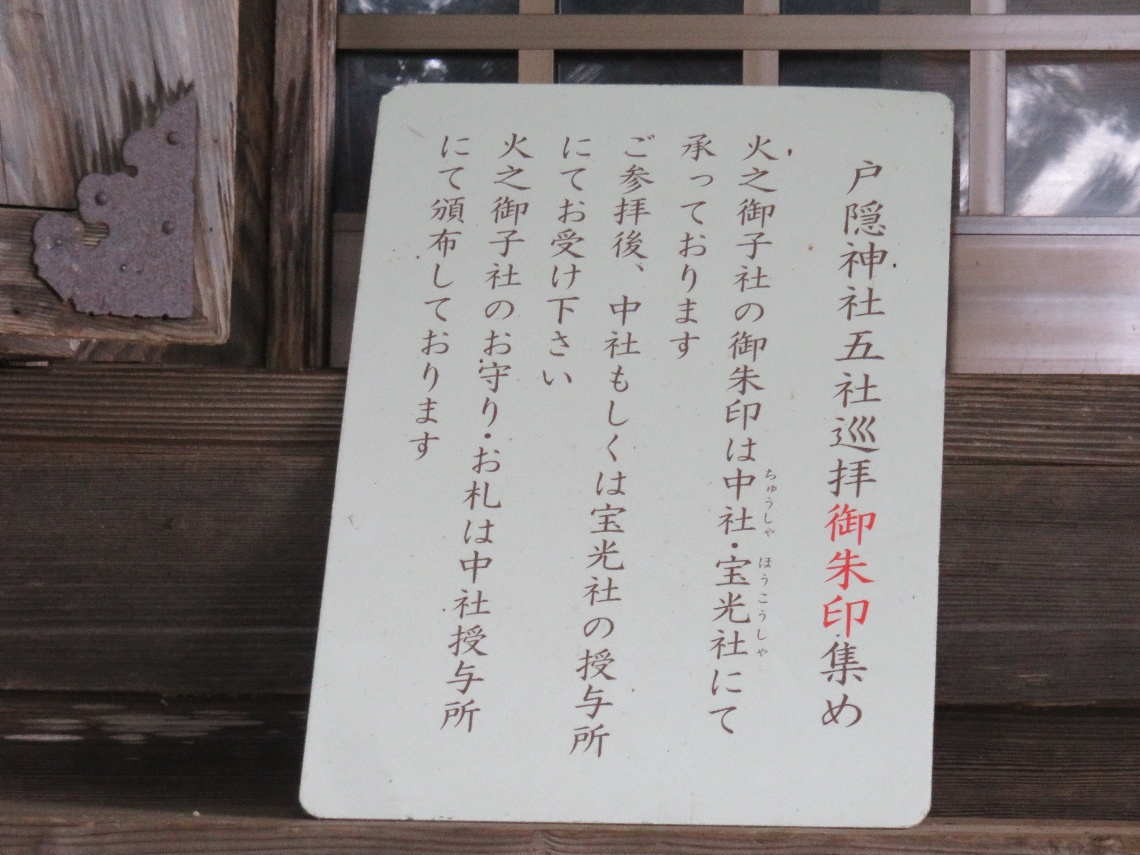 戸隠神社五社巡拝御朱印集め
火之御子社の御朱印は中社・宝光社にて
ちゅうしゃ ほうこうしゃ
承っております
ご参拝後、中社もしくは宝光社の授与所
にてお受け下さい
火之御子社のお守り・お札は中社授与所
にて頒布しております